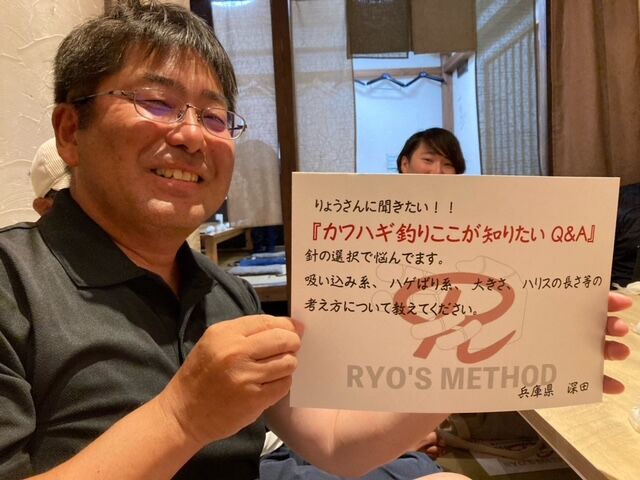 りょうさんに聞きたい！！
『カワハギ釣りここが知りたい Q&A』
針の選択で悩んでます。
吸い込み系、ハゲばり系、大きさ、ハリスの長さ等の
考え方について教えてください。
RYO'S METHOD
兵庫県 深田
RYO'S METHOD